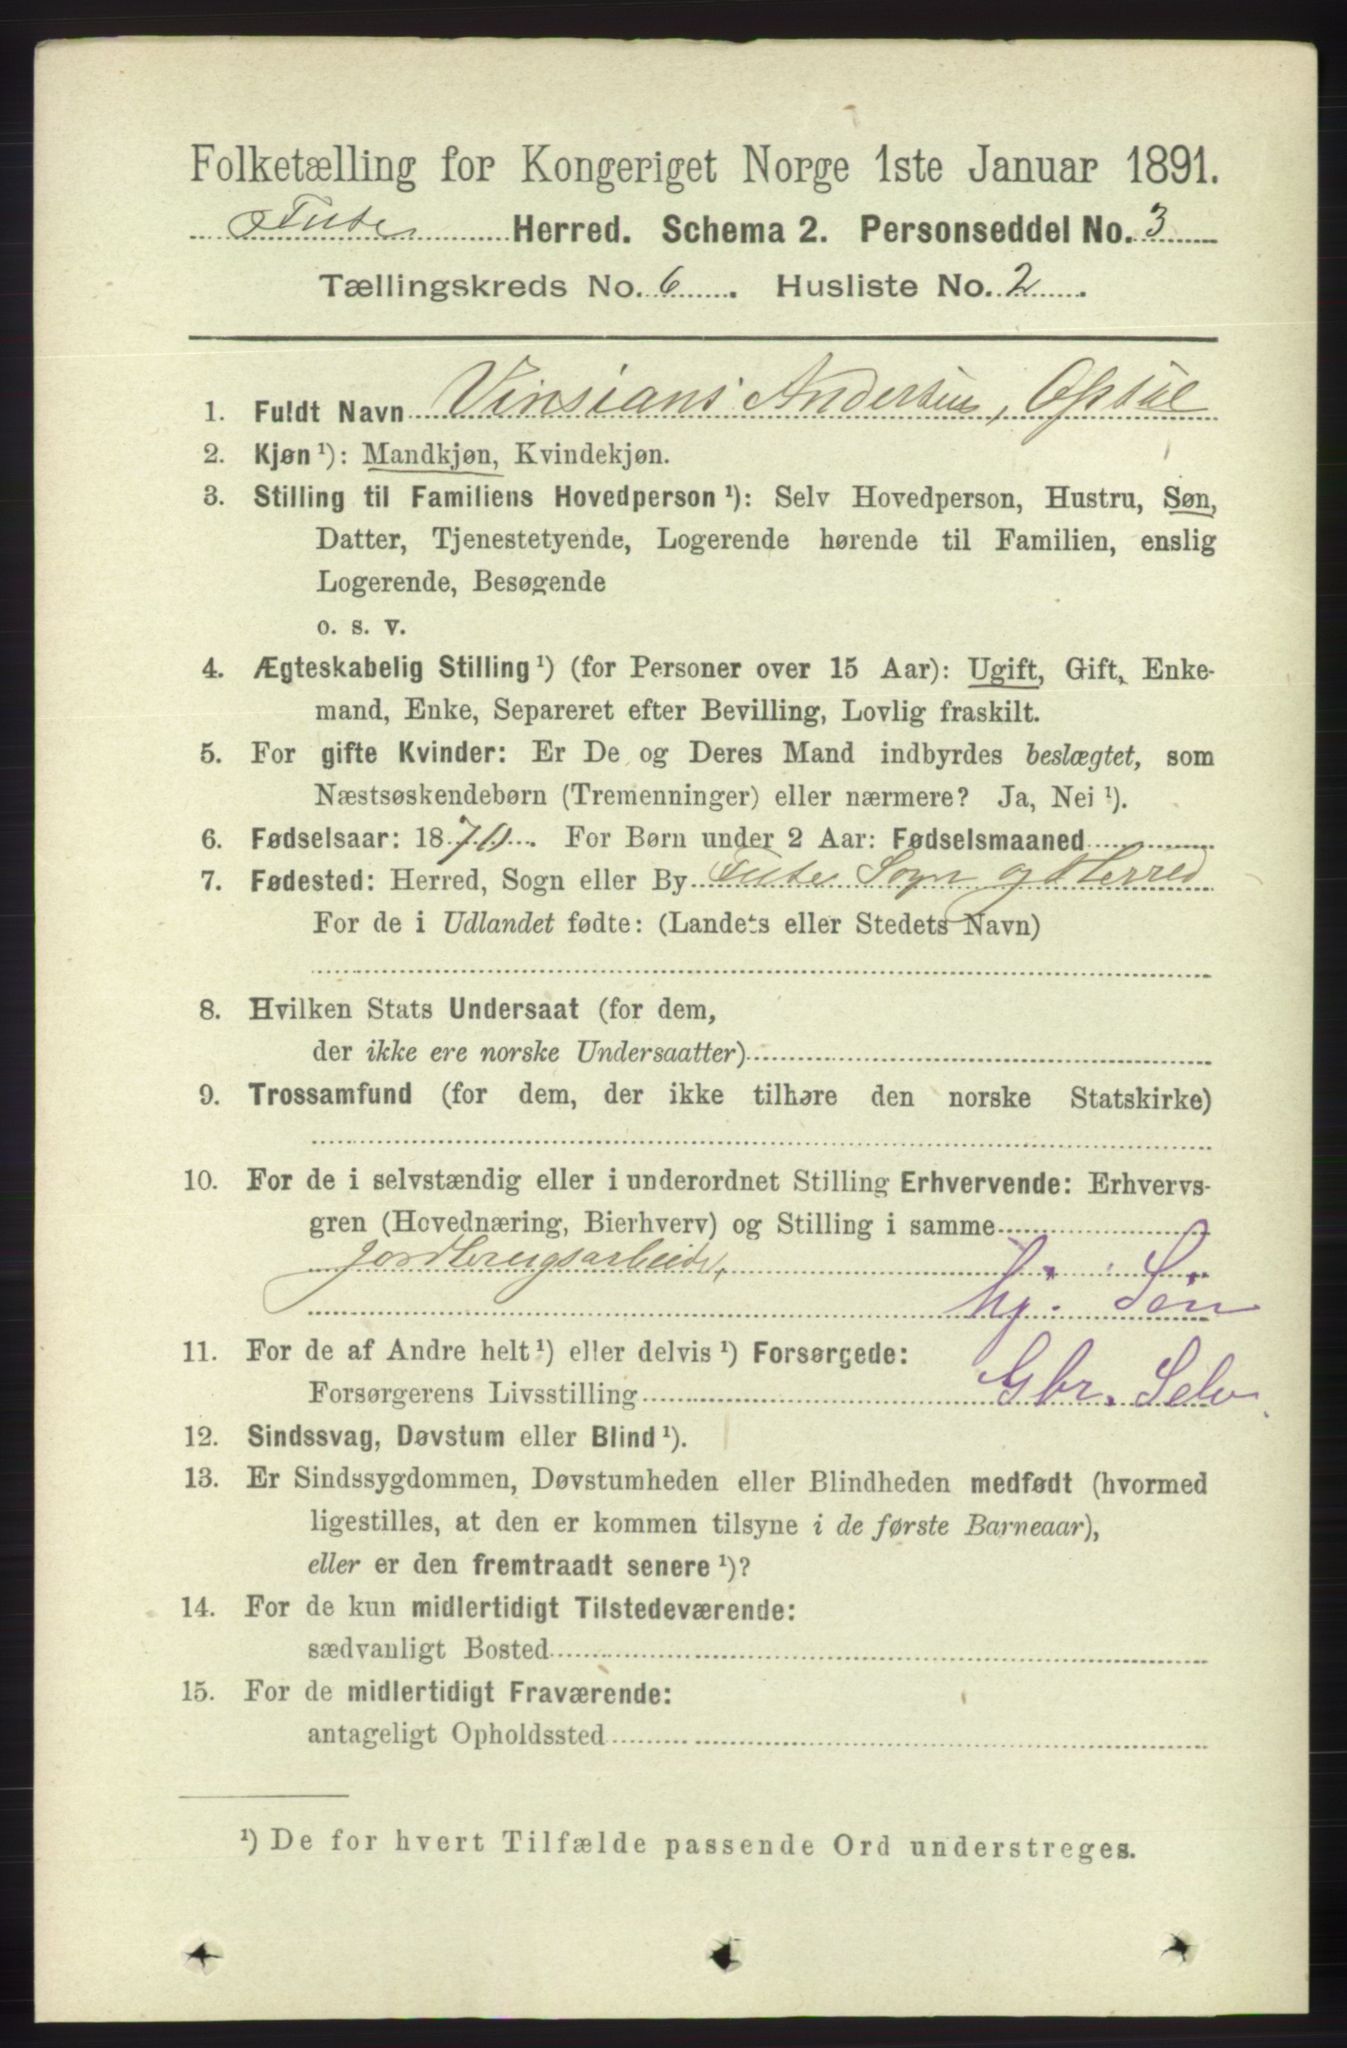 Folketælling for Kongeriget Norge 1ste Januar 1891.
Fuse Herred. Schema 2. Personseddel No. 3
Tællingskreds No. 6. Husliste No. 2.
1. Fuldt Navn Vinsians Andersen, Opsal
2. Kjøn ¹): Mandkjøn, Kvindekjøn.
3. Stilling til Familiens Hovedperson ¹): Selv Hovedperson, Hustru, Søn,
Datter, Tjenestetyende, Logerende hørende til Familien, enslig
Logerende, Besøgende
o. s. v.
4. Ægteskabelig Stilling ¹) (for Personer over 15 Aar): Ugift, Gift, Enke-
mand, Enke, Separeret efter Bevilling, Lovlig fraskilt.
5. For gifte Kvinder: Er De og Deres Mand indbyrdes beslægtet, som
Næstsøskendebørn (Tremenninger) eller nærmere? Ja, Nei ¹).
6. Fødselsaar: 1870. For Børn under 2 Aar: Fødselsmaaned
7. Fødested: Herred, Sogn eller By Fuse Sogn og Herred
For de i Udlandet fødte: (Landets eller Stedets Navn)
8. Hvilken Stats Undersaat (for dem,
der ikke ere norske Undersaatter)
9. Trossamfund (for dem, der ikke tilhøre den norske Statskirke)
10. For de i selvstændig eller i underordnet Stilling Erhvervende: Erhvervs-
gren (Hovednæring, Bierhverv) og Stilling i samme
Jordbrugsarbeide,
hj. Søn
11. For de af Andre helt ¹) eller delvis ¹) Forsørgede:
Forsørgerens Livsstilling Gbr. Selv
12. Sindssvag, Døvstum eller Blind ¹).
13. Er Sindssygdommen, Døvstumheden eller Blindheden medfødt (hvormed
ligestilles, at den er kommen tilsyne i de første Barneaar),
eller er den fremtraadt senere ¹)?
14. For de kun midlertidigt Tilstedeværende:
sædvanligt Bosted
15. For de midlertidigt Fraværende:
antageligt Opholdssted
¹) De for hvert Tilfælde passende Ord understreges.